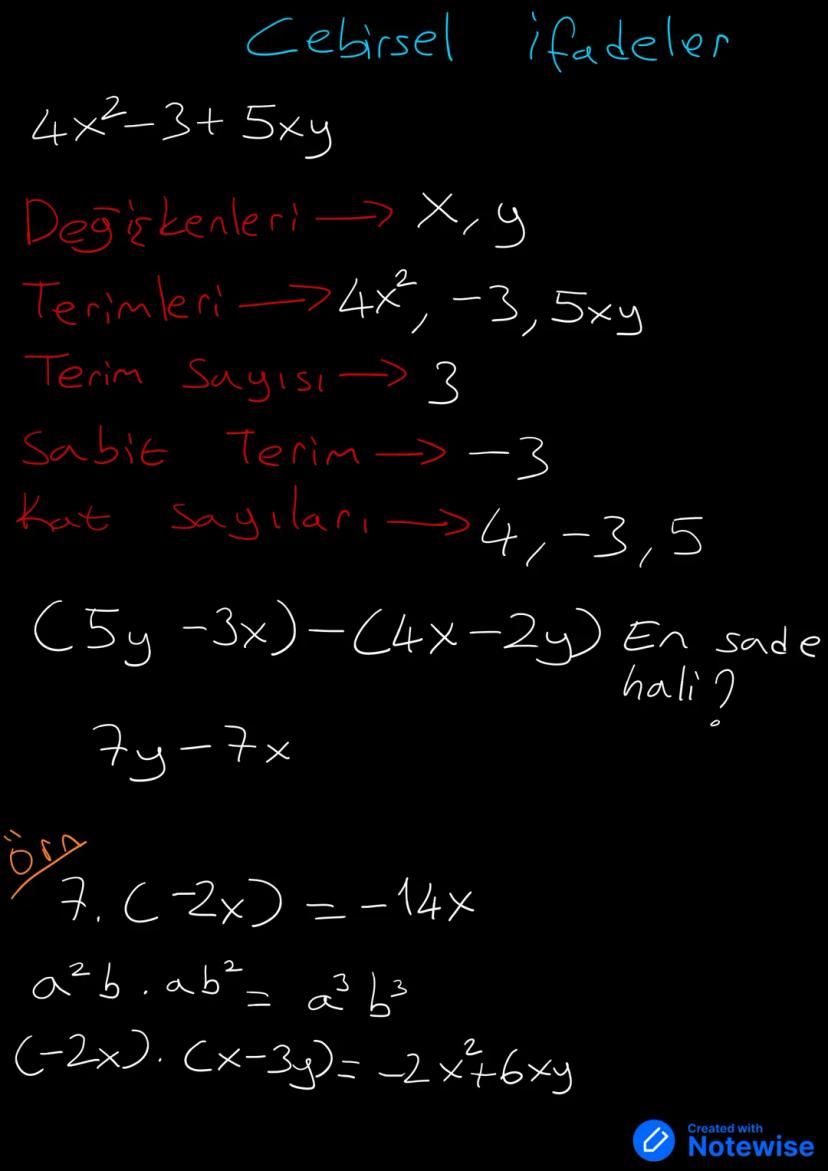 Cebirsel ifadeler
4x² - 3 + 5xy
Değişkenleri → x, y
Terimleri → 4x², -3, 5xy
Terim sayısı → 3
Sabit Terim → -3
Kat sayıları → 4, -3, 5
(5y - 3x) - (4x - 2y) En sade
hali?
7y - 7x
Örn
7. (-2x) = -14x
a²b . ab² = a³b³
(-2x). (x-3y) = -2x² + 6xy
Created with
Notewise